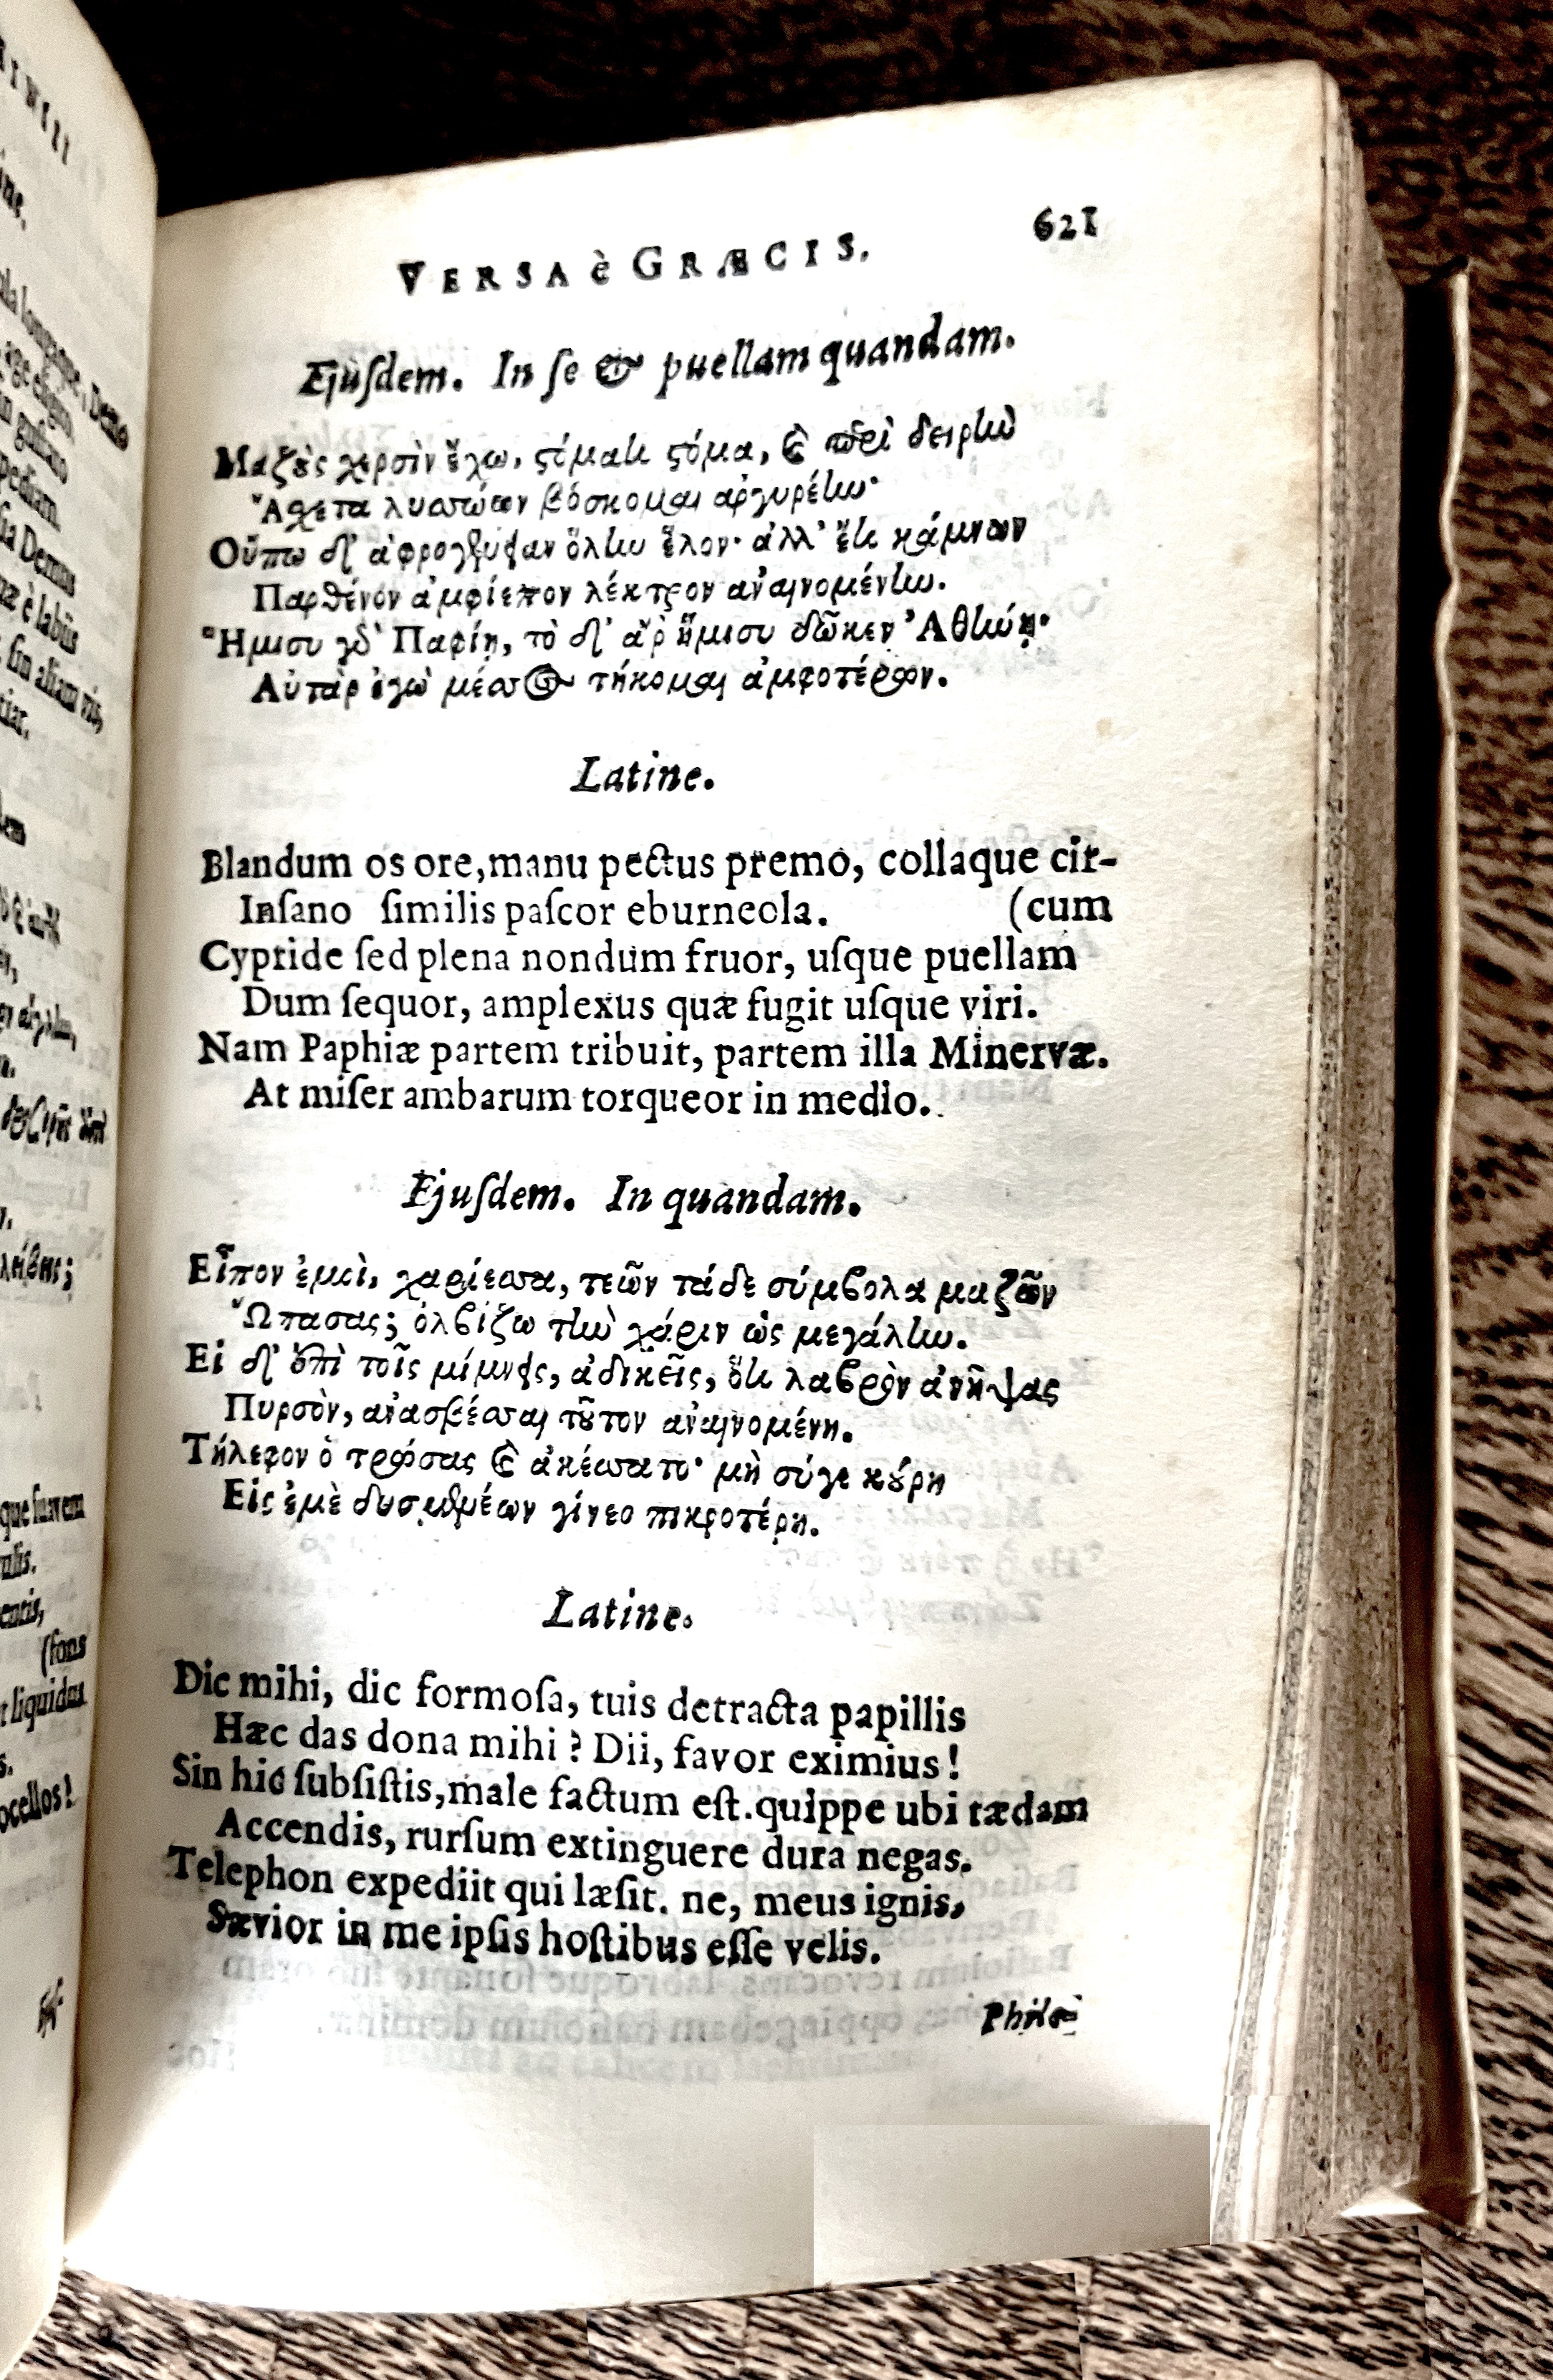 VERSA è GRÆCIS. 621
Ejusdem. In se & puellam quandam.
Μαζοὺς χερσὶν ἔχω, στόματι στόμα, καὶ περὶ δειρὴν
Ἄχετα λυσσώων βόσκομαι ἀργυρέην·
Οὔπω δ' ἀφρογένειαν ὅλην ἕλον· ἀλλ' ἔτι κάμνων
Παρθένον ἀμφίεπον λέκτρον ἀναινομένην.
Ἥμισυ γὰρ Παφίῃ, τὸ δ' ἄρ' ἥμισυ δῶκεν Ἀθήνῃ·
Αὐτὰρ ἐγὼ μέσσος τήκομαι ἀμφοτέρων.
Latine.
Blandum os ore, manu pectus premo, collaque cir-
Insano similis pascor eburneola. (cum
Cypride sed plena nondum fruor, usque puellam
Dum sequor, amplexus quæ fugit usque viri.
Nam Paphiæ partem tribuit, partem illa Minervæ.
At miser ambarum torqueor in medio.
Ejusdem. In quandam.
Εἶπον ἐμοὶ, χαρίεσσα, τεῶν τάδε σύμβολα μαζῶν
Ὤπασας; ὀλβίζω τὴν χάριν ὡς μεγάλην.
Εἰ δ' ἐπὶ τοῖς μίμνεις, ἀδικεῖς, ὅτι λαβρὸν ἀνῆψας
Πυρσὸν, ἀνασβέσσαι τοῦτον ἀναινομένη.
Τήλεφον ὁ τρώσας καὶ ἀκέσσατο· μὴ σύγε κούρη
Εἰς ἐμὲ δυσμενέων γίνεο πικροτέρη.
Latine.
Dic mihi, dic formosa, tuis detracta papillis
Hæc das dona mihi? Dii, favor eximius!
Sin hic subsistis, male factum est. quippe ubi tædam
Accendis, rursum extinguere dura negas.
Telephon expediit qui læsit. ne, meus ignis,
Sævior in me ipsis hostibus esse velis.
Philo-